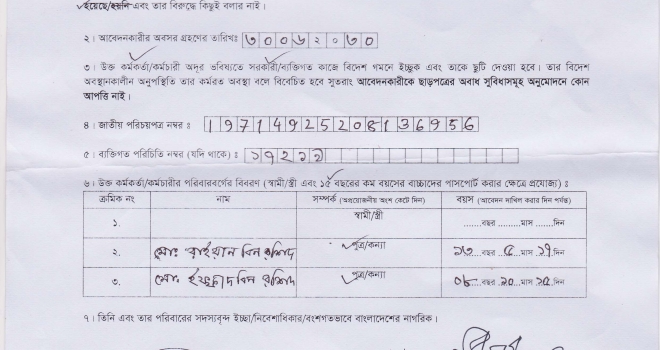 হয়েছে/হয়নি এবং তার বিরুদ্ধে কিছুই বলার নাই।
২। আবেদনকারীর অবসর গ্রহণের তারিখঃ ৩০০৬২০৩০
৩। উক্ত কর্মকর্তা/কর্মচারী অদূর ভবিষ্যতে সরকারী/ব্যক্তিগত কাজে বিদেশ গমনে ইচ্ছুক এবং তাকে ছুটি দেওয়া হবে। তার বিদেশ
অবস্থানকালীন অনুপস্থিতি তার কর্মরত অবস্থা বলে বিবেচিত হবে সুতরাং আবেদনকারীকে ছাড়পত্রের অবাধ সুবিধাসমূহ অনুমোদনে কোন
আপত্তি নাই।
৪। জাতীয় পরিচয়পত্র নম্বর ঃ 19714925208136956
৫। ব্যক্তিগত পরিচিতি নম্বর (যদি থাকে) ঃ
৬। উক্ত কর্মকর্তা/কর্মচারীর পরিবারবর্গের বিবরণ (স্বামী/স্ত্রী এবং ১৫ বছরের কম বয়সের বাচ্চাদের পাসপোর্ট করার ক্ষেত্রে প্রযোজ্য) ঃ
ক্রমিক নং নাম সম্পর্ক (অপ্রয়োজনীয় অংশ কেটে দিন) বয়স (আবেদন দাখিল করার দিন পর্যন্ত)
১. স্বামী/স্ত্রী ........বছর ........মাস ......দিন
২. মোঃ রাইয়ান বিন রশিদ পুত্র/কন্যা ১৩ বছর ৫ মাস ১৭ দিন
৩. মোঃ বিন রশিদ পুত্র/কন্যা ০৮ বছর ১০ মাস ১৫ দিন
৭। তিনি এবং তার পরিবারের সদস্যবৃন্দ ইচ্ছা/নিবেশাধিকার/বংশগতভাবে বাংলাদেশের নাগরিক।